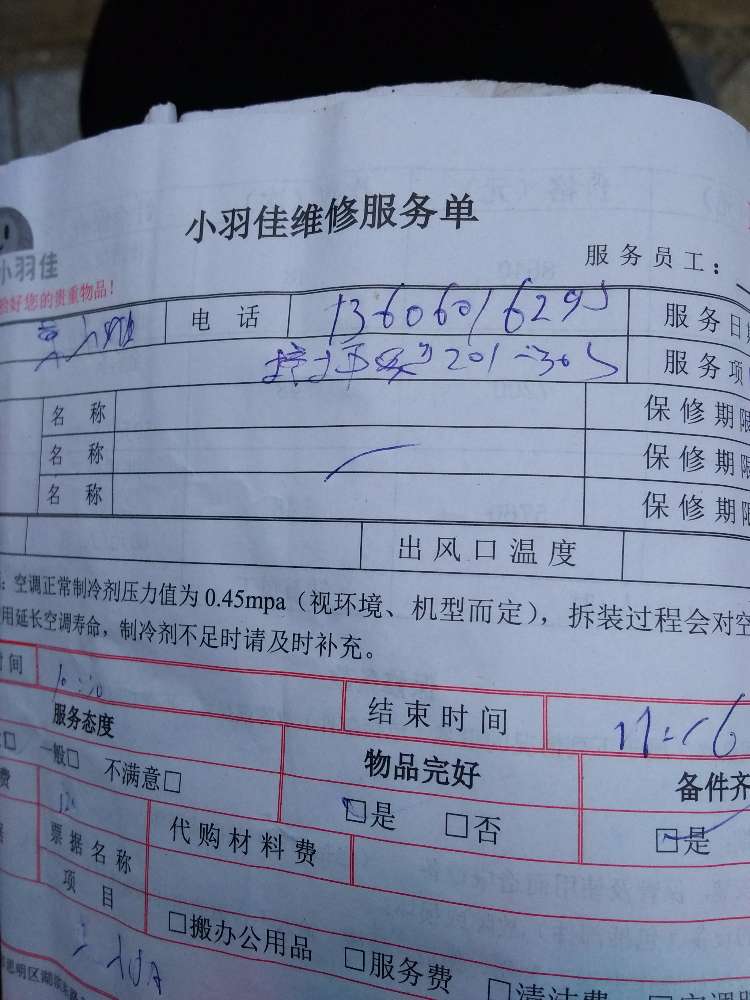 小羽佳维修服务单
小羽佳
服务员工：
好您的贵重物品！
电话 13606016295 服务日
201-305 服务项
名称 保修期限
名称 保修期限
名称 保修期限
出风口温度
：空调正常制冷剂压力值为0.45mpa（视环境、机型而定），拆装过程会对空
用延长空调寿命，制冷剂不足时请及时补充。
时间 结束时间 11:16
服务态度 物品完好 备件齐
□ 一般□ 不满意□ □是 □否 □是
费 代购材料费
据 票据名称
项目 □搬办公用品 □服务费 □清洁费
思明区湖滨